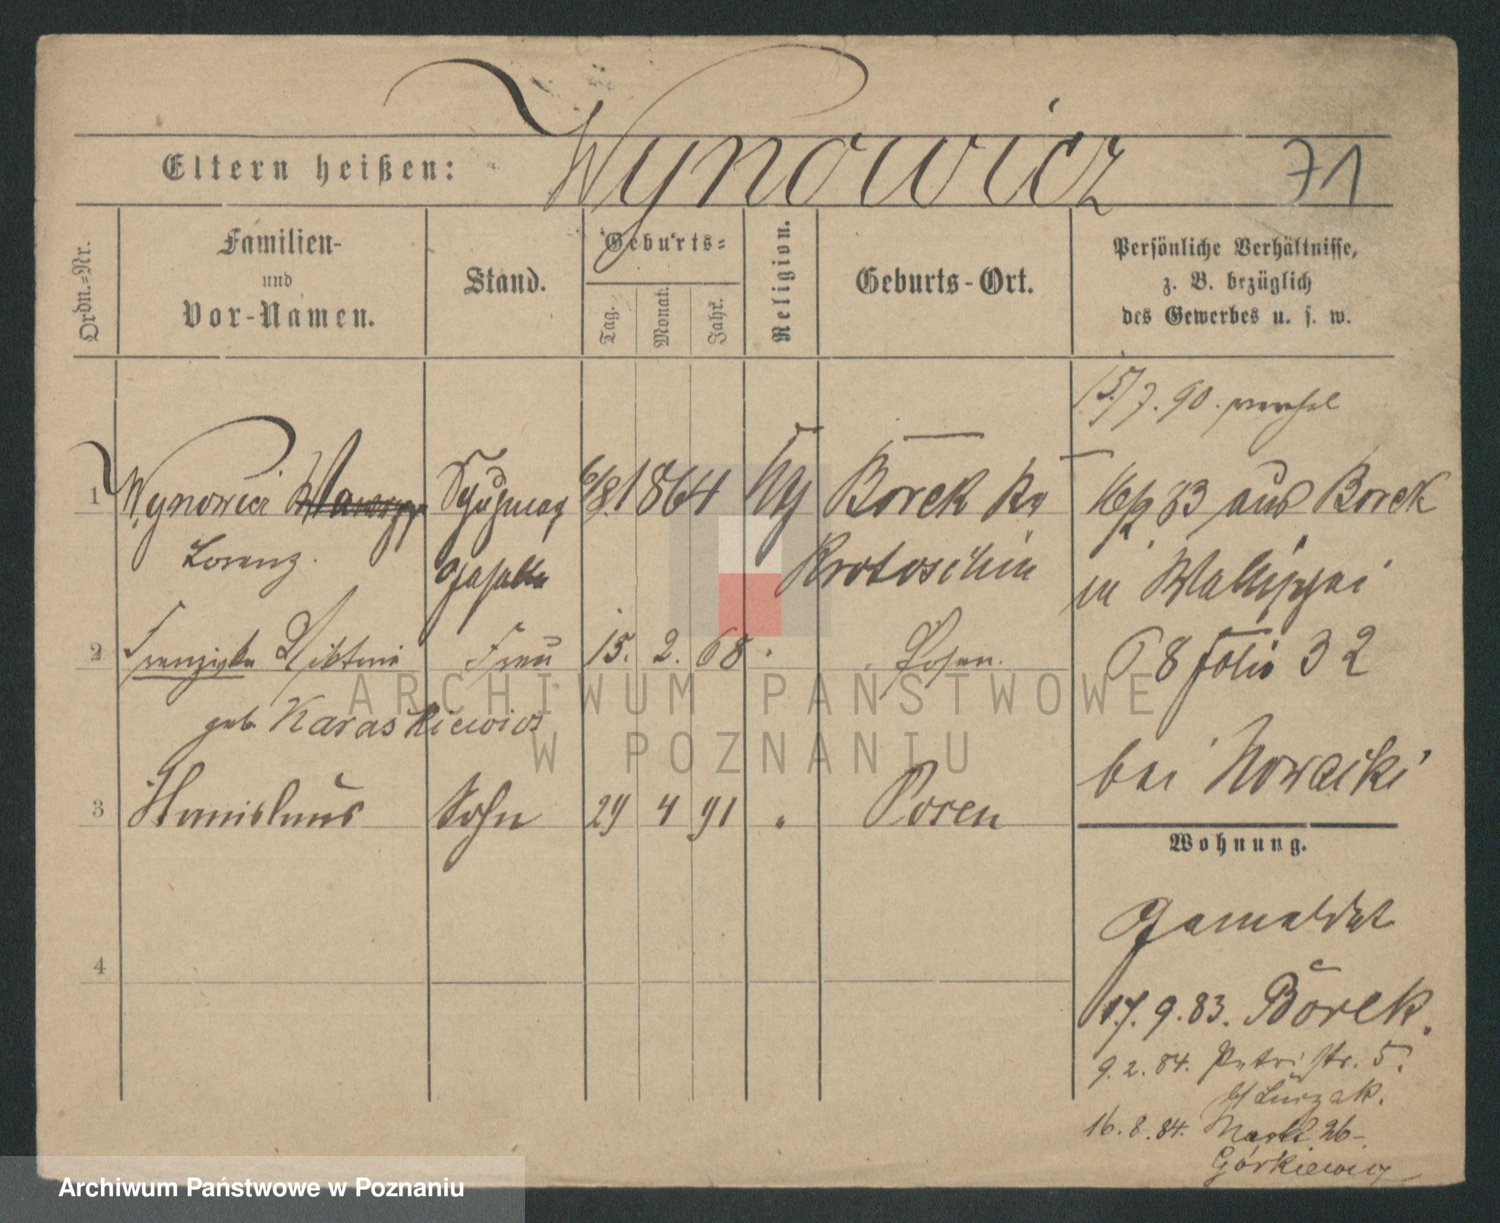 Wynowicz
Eltern heißen:
71
Ordn.=Nr.
Familien-
und
Vor-Namen.
Stand.
Geburts=
Tag.
Monat.
Jahr.
Religion.
Geburts-Ort.
Persönliche Verhältnisse,
z. B. bezüglich
des Gewerbes u. s. w.
15/7. 90.
1 Wynowicz Wawrzyn 6/8. 1864 Borek Kr
Lorenz. geselle Krotoschin
16/9 83 aus Borek
in
68 folio 32
bei Nowacki
2 Franziska Viktoria Frau 15. 2. 68 Posen.
geb Karaskiewicz
3 Stanislaus Sohn 29 4 91 " Posen
4
Wohnung.
Gemeldet
17. 9. 83. Borek.
9. 2. 84. Petristr. 5.
b/ Luczak.
16. 8. 84. Markt 26
Górkiewicz
ARCHIWUM PAŃSTWOWE
W POZNANIU
Archiwum Państwowe w Poznaniu